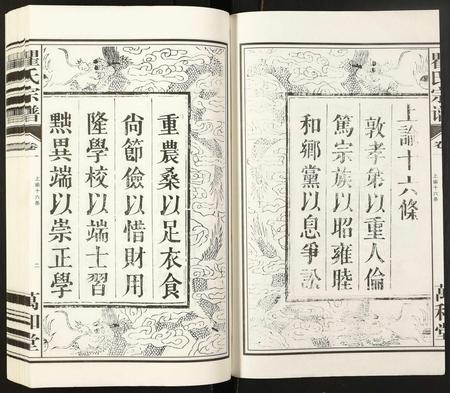 瞿氏宗譜
卷
上諭十六条
萬和堂
上諭十六條
敦孝弟以重人倫
篤宗族以昭雍睦
和鄉黨以息爭訟
重農桑以足衣食
尙節儉以惜財用
隆學校以端士習
黜異端以崇正學
瞿氏宗譜
卷一
上諭十六条
二
萬和堂